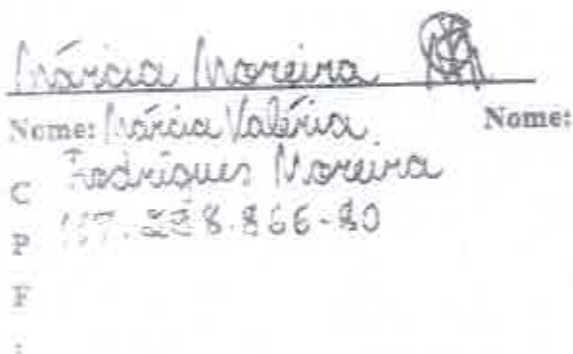 Márcia Moreira
Nome: Márcia Valéria
Nome:
Rodrigues Moreira
C
P
F
: